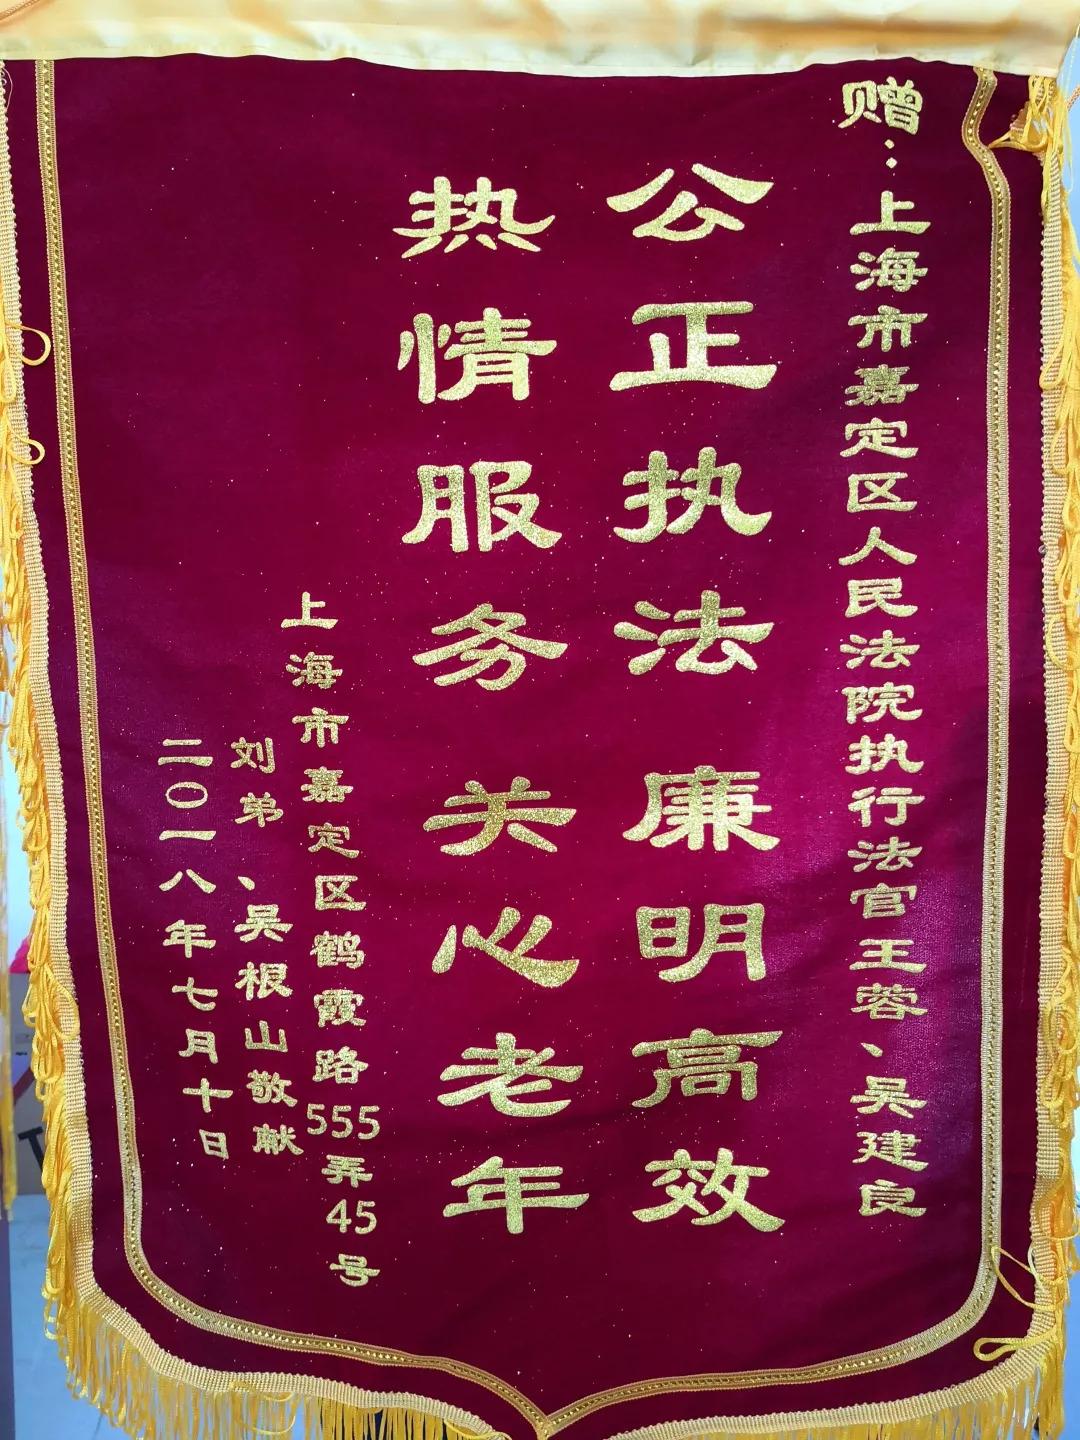 赠：上海市嘉定区人民法院执行法官王蓉、吴建良
公正执法 廉明高效
热情服务 关心老年
上海市嘉定区鹤霞路555弄45号
刘弟、吴根山敬献
二〇一八年七月十日